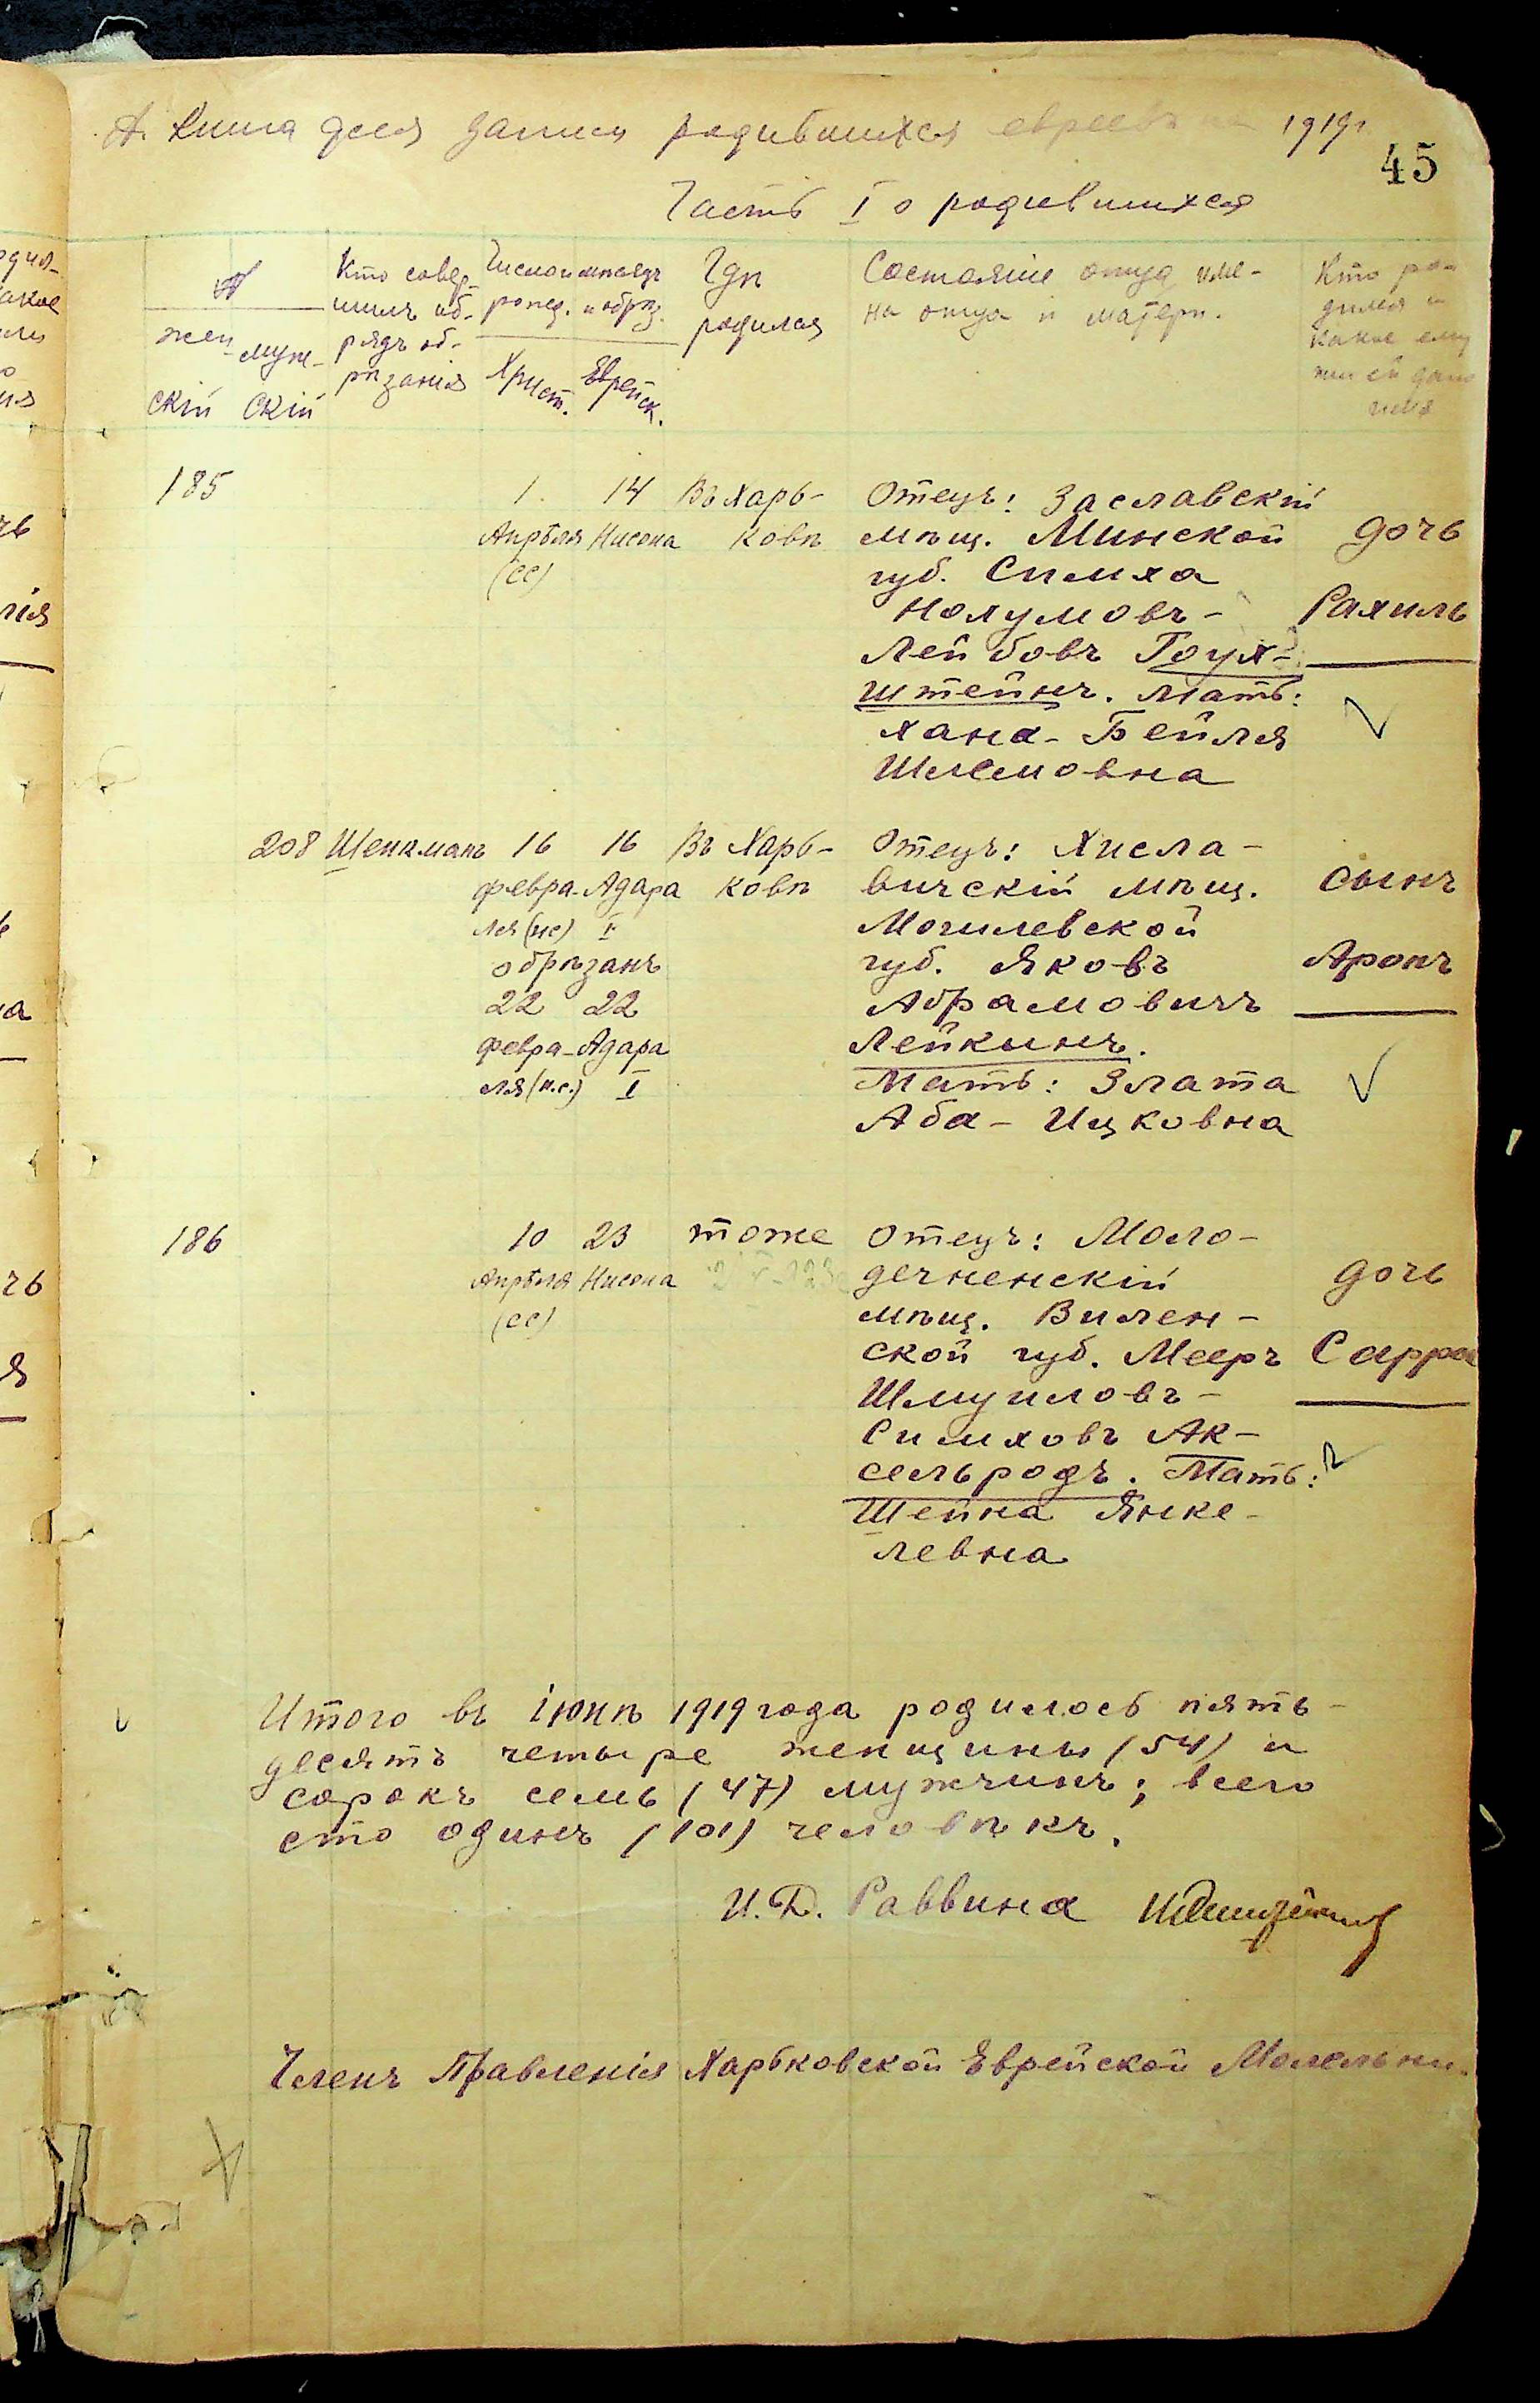 А. Книга для записи родившихся евреевъ на 1919г.
45
Часть I о родившихся
№
жен-
скій
муж-
скій
Кто совер-
шилъ об-
рядъ об-
рѣзанія
Число и мѣсяцъ
рожд. и обрѣз.
Христ. Еврейск.
Гдѣ
родился
Состояніе отца, име-
на отца и матери.
Кто ро-
дился и
какое ему
или ей дано
имя
185
1. 14
Апрѣля Нисона
(сс)
Въ Харь-
ковѣ
Отецъ: Заславскій
мѣщ. Минской
губ. Симха
Нохумовъ-
Лейбовъ Гоух-
штейнъ. Мать:
Хана-Бейля
Шлемовна
дочь
Рахиль
208 Шенкманъ
16 16
февра- Адара
ля (нс) I
обрѣзанъ
22 22
февра- Адара
ля (н.с.) I
Въ Харь-
ковѣ
Отецъ: Хисла-
вичскій мѣщ.
Могилевской
губ. Яковъ
Абрамовичъ
Лейкинъ.
Мать: Злата
Аба-Ицковна
сынъ
Аронъ
186
10 23
Апрѣля Нисона
(сс)
тоже
Отецъ: Моло-
дечненскій
мѣщ. Вилен-
ской губ. Мееръ
Шмуиловъ-
Симховъ Ак-
сельродъ. Мать:
Шейна Янке-
левна
дочь
Сарра
Итого въ іюнѣ 1919 года родилось пять-
десятъ четыре женщины (54) и
сорокъ семь (47) мужчинъ; всего
сто одинъ (101) человѣкъ.
И. Д. Раввина
Членъ Правленія Харьковской Еврейской Молельни.